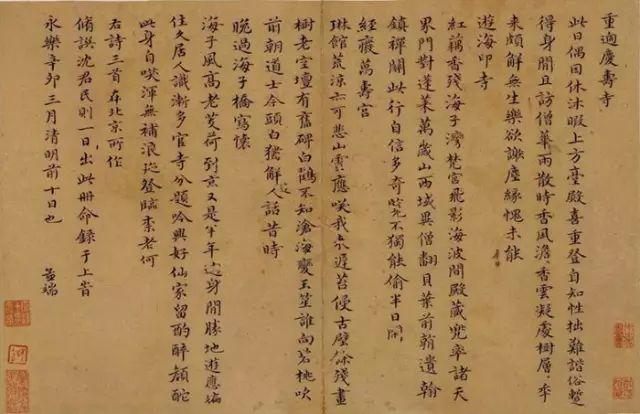 重過慶壽寺
此日偶因休沐暇上方臺殿喜重登自知性拙難諧俗暫
得身閒且訪僧華雨散時香風澹香雲凝處樹層々年
来頗解無生樂欲謝塵緣愧未能
遊海印寺
紅藕香殘海子灣梵宮飛影海波間殿藏兜率諸天
界門對蓬莱萬歲山西域異僧翻貝葉前朝遺翰
鎮禪關此行自信多奇覽不獨能偷半日閒
經廢萬壽宮
琳館荒涼亦可悲山靈應嘆我来遲苔侵古壁餘殘畫
樹老空壇有舊碑白鶴不知滄海變玉笙誰向碧桃吹
前朝道士今頭白猶解近人話昔時
晚過海子橋寫懷
海子風高老芰荷到京又是半年過身閒勝地遊應遍
住久居人識漸多官寺分題吟興好仙家留酌醉顔酡
此身自唉渾無補浪跡登臨柰老何
右詩三首在北京所作
脩譔沈君民則一日出此冊命錄于上時
永樂辛卯三月清明前十日也
孟端